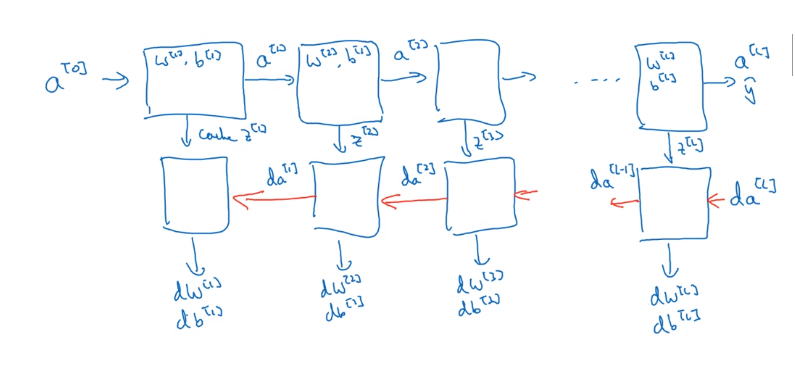 a^[0]
w^[1], b^[1]
a^[1]
w^[2], b^[1]
a^[2]
....
w^[L]
b^[L]
a^[L]
ŷ
cache z^[1]
z^[2]
z^[3]
z^[L]
da^[1]
da^[2]
da^[L-1]
da^[L]
dw^[1]
db^[1]
dw^[2]
db^[2]
dw^[3]
db^[3]
dw^[L]
db^[L]